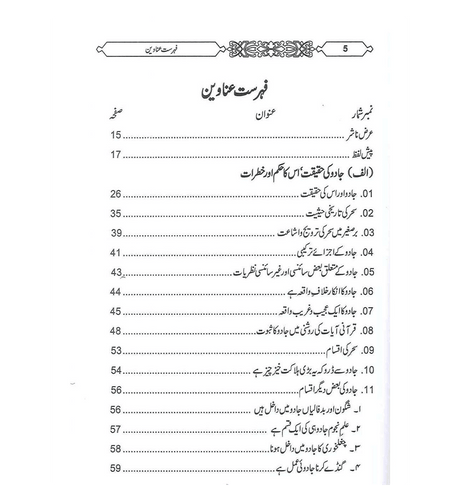 فہرست عناوین 5
فہرست عناوین
نمبر شمار عنوان صفحہ
عرض ناشر 15
پیش لفظ 17
(الف) جادو کی حقیقت، اس کا حکم اور خطرات
01. جادو اور اس کی حقیقت 26
02. سحر کی تاریخی حیثیت 35
03. برصغیر میں سحر کی ترویج و اشاعت 39
04. جادو کے اجزائے ترکیبی 41
05. جادو کے متعلق بعض سائنسی اور غیر سائنسی نظریات 43
06. جادو کا انکار خلافِ واقعہ ہے 44
07. جادو کا ایک عجیب و غریب واقعہ 45
08. قرآنی آیات کی روشنی میں جادو کا ثبوت 48
09. سحر کی اقسام 53
10. جادو سے ڈرو کہ یہ بڑی ہلاکت خیز چیز ہے 54
11. جادو کی بعض دیگر اقسام 56
۱۔ شگون اور بدفالیاں جادو میں داخل ہیں 56
۲۔ علم نجوم جادو ہی کی ایک قسم ہے 57
۳۔ چغلخوری کا جادو میں داخل ہونا 58
۴۔ گنڈے کرنا جادوئی عمل ہے 59